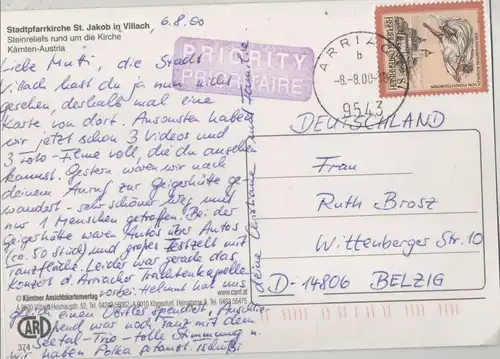 Stadtpfarrkirche St. Jakob in Villach
Steinreliefs rund um die Kirche
Kärnten-Austria
6.8.00
Liebe Mutti, die Stadt
Villach hast du ja nun nicht
gesehen, deshalb mal eine
Karte von dort. Ansonsten haben
wir jetzt schon 3 Videos und
3 Foto-Filme voll, die du ansehen
kannst. Gestern waren wir nach
deinem Anruf zur Geigerhütte ge-
wandert - sehr schöner Weg und
nur 1 Menschen getroffen. Bei der
Geigerhütte waren Autos über Autos
(ca. 50 Stück) und großes Festzelt mit
Tanzfläche. Leider war gerade das
Konzert d. Arriacher Trachtenkapelle
vorbei. Helmut hat uns
gleich einen Obstler spendiert. Anschlie-
ßend war noch Tanz mit dem
Seetal-Trio - tolle Stimmung u.
wir haben Polka getanzt.
deine Christiane und Familie
PRIORITY
PRIORITAIRE
ARRIACH
b
-8.-8.00-
9543
REPUBLIK ÖSTERREICH
S 8
DEUTSCHLAND
Frau
Ruth Brosz
Wittenberger Str. 10
D-14806 BELZIG
© Kärntner Ansichtskartenverlag
www.card.at
A 9500 Villach
A 9010 Klagenfurt
CARD
374